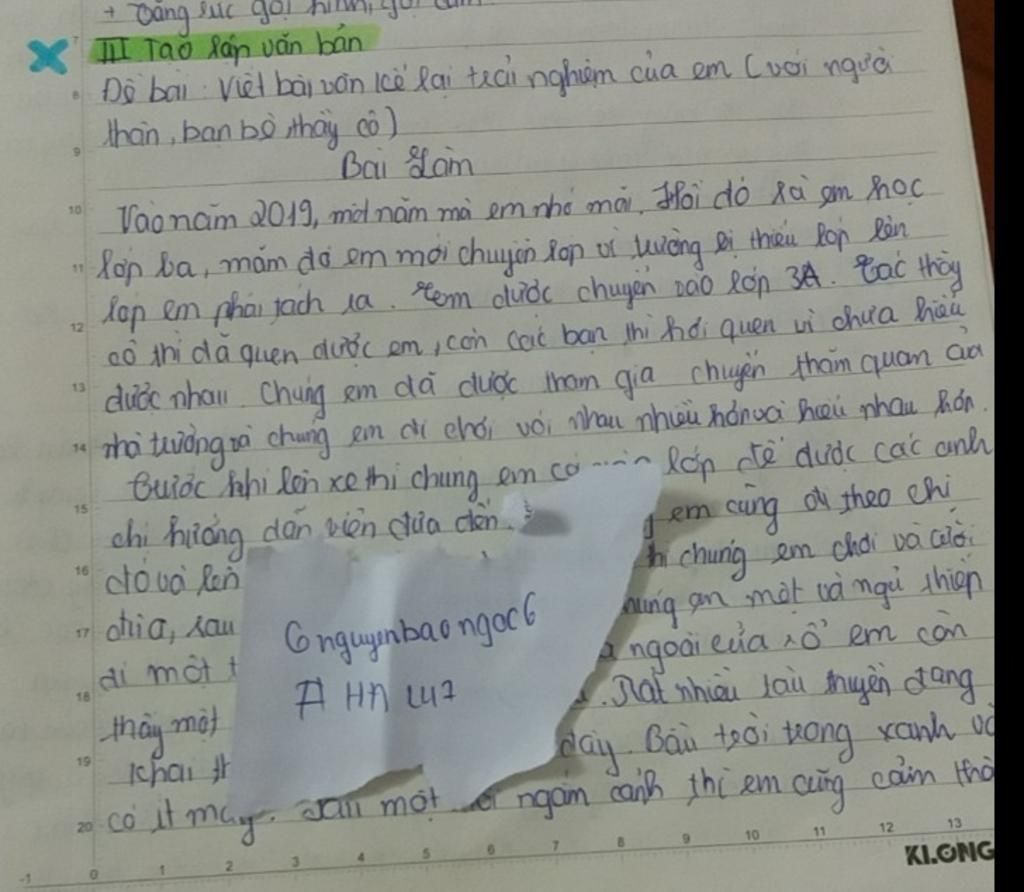 + Dâng sức gợi hình, gợi
III Tạo lập văn bản
Đề bài: Viết bài văn kể lại trải nghiệm của em (với người
thân, bạn bè, thầy cô)
Bài làm
Vào năm 2019, một năm mà em nhớ mãi. Hồi đó là em học
lớp ba, năm đó em mới chuyển lớp vì trường bị thiếu lớp lên
lớp em phải tách ra. Em được chuyển vào lớp 3A. Các thầy
cô thì đã quen được em, còn các bạn thì hơi quen vì chưa hiểu
được nhau. Chúng em đã được tham gia chuyến thăm quan của
nhà trường và chúng em đi chơi với nhau nhiều hơn và hiểu nhau hơn.
Trước khi lên xe thì chúng em có lớp để được các anh
chị hướng dẫn viên đưa đến. em cũng đi theo chị
đó và lên thì chúng em chơi và cười
đùa, sau chúng em mệt và ngủ thiếp
đi một ngoài cửa sổ em còn
thấy một Rất nhiều tàu thuyền đang
khai đây. Bầu trời trong xanh và
có ít mây. Sau một ngắm cảnh thì em cũng cảm thấ
6 nguyenbaongoc6
A HN LU7
KLONG